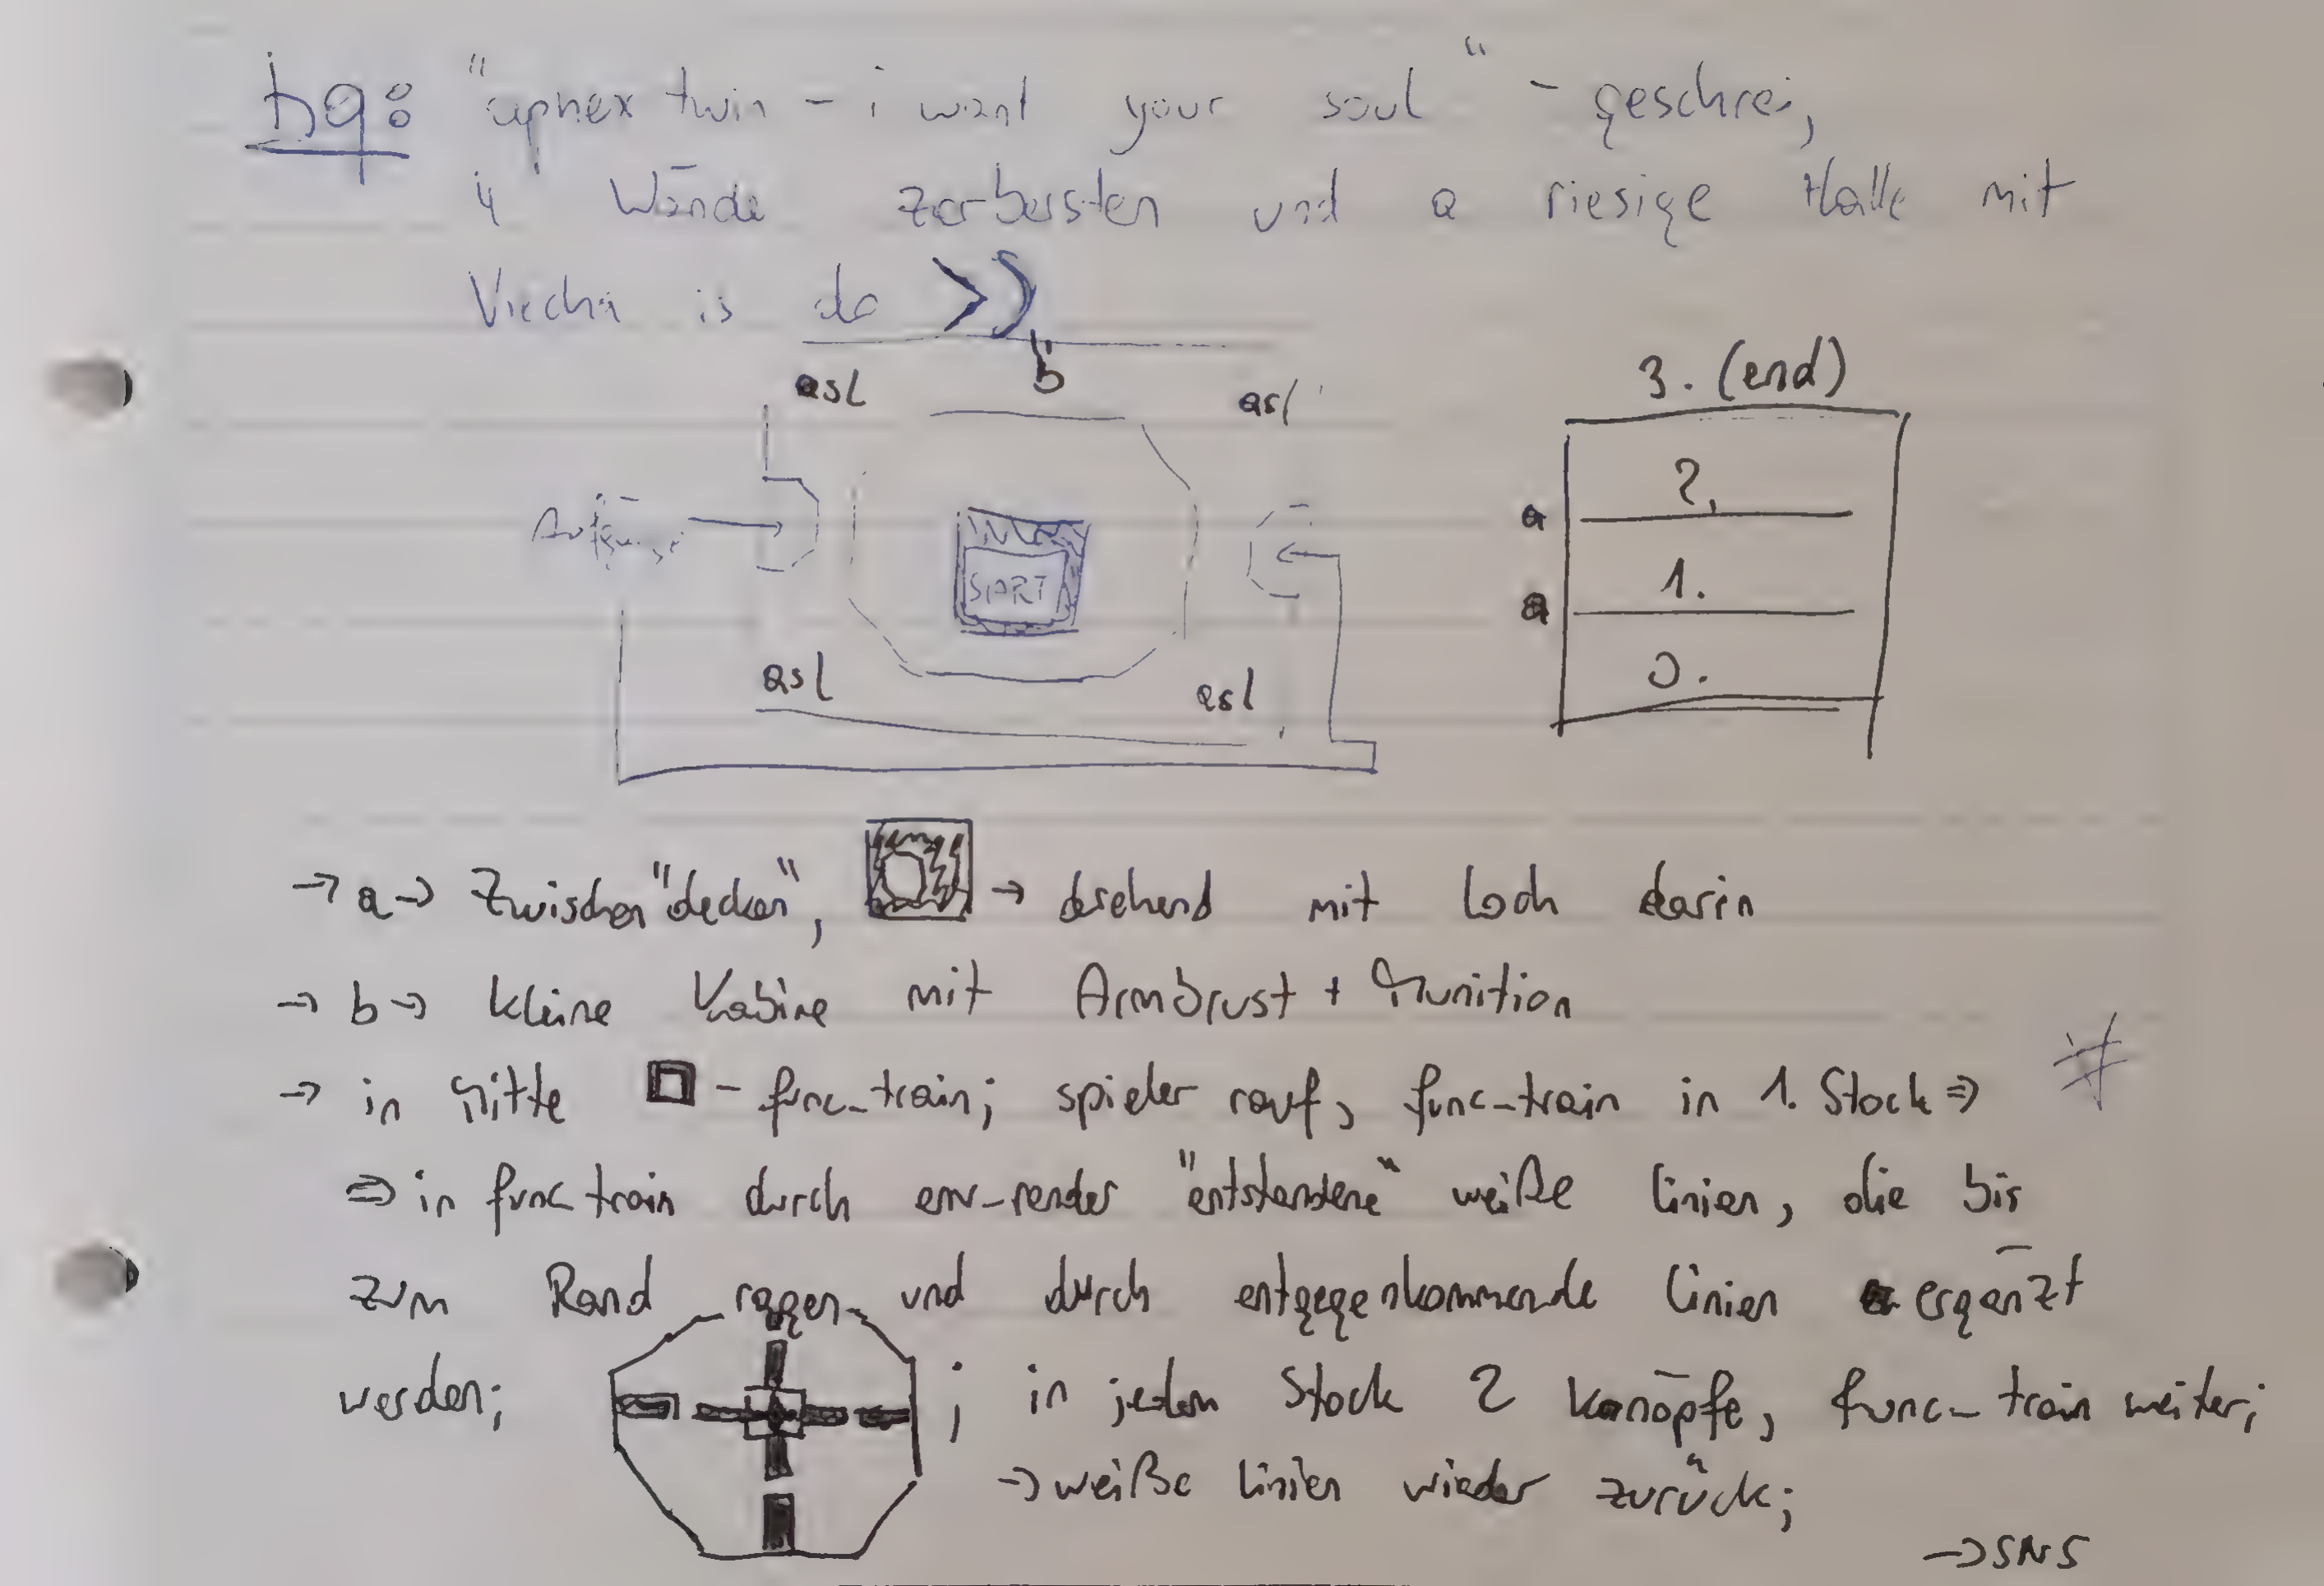 hq: "aphex twin - i want your soul" - geschrei,
4 Wände zerbersten und a riesige Halle mit
Viecha is do >>
asl b asl
3. (end)
2.
a
START
1.
a
0.
asl asl
→ a → Zwischen"decken", → drehend mit Loch darin
→ b → kleine Kabine mit Armbrust + Munition
→ in Mitte - func_train; spieler rauf, func_train in 1. Stock ⇒ #
⇒ in func_train durch env_render "entstandene" weiße linien, die bis
zum Rand ragen und durch entgegenkommende linien ergänzt
werden; ; in jedem Stock 2 knöpfe, func_train weiter;
→ weiße linien wieder zurück;
→ SNS